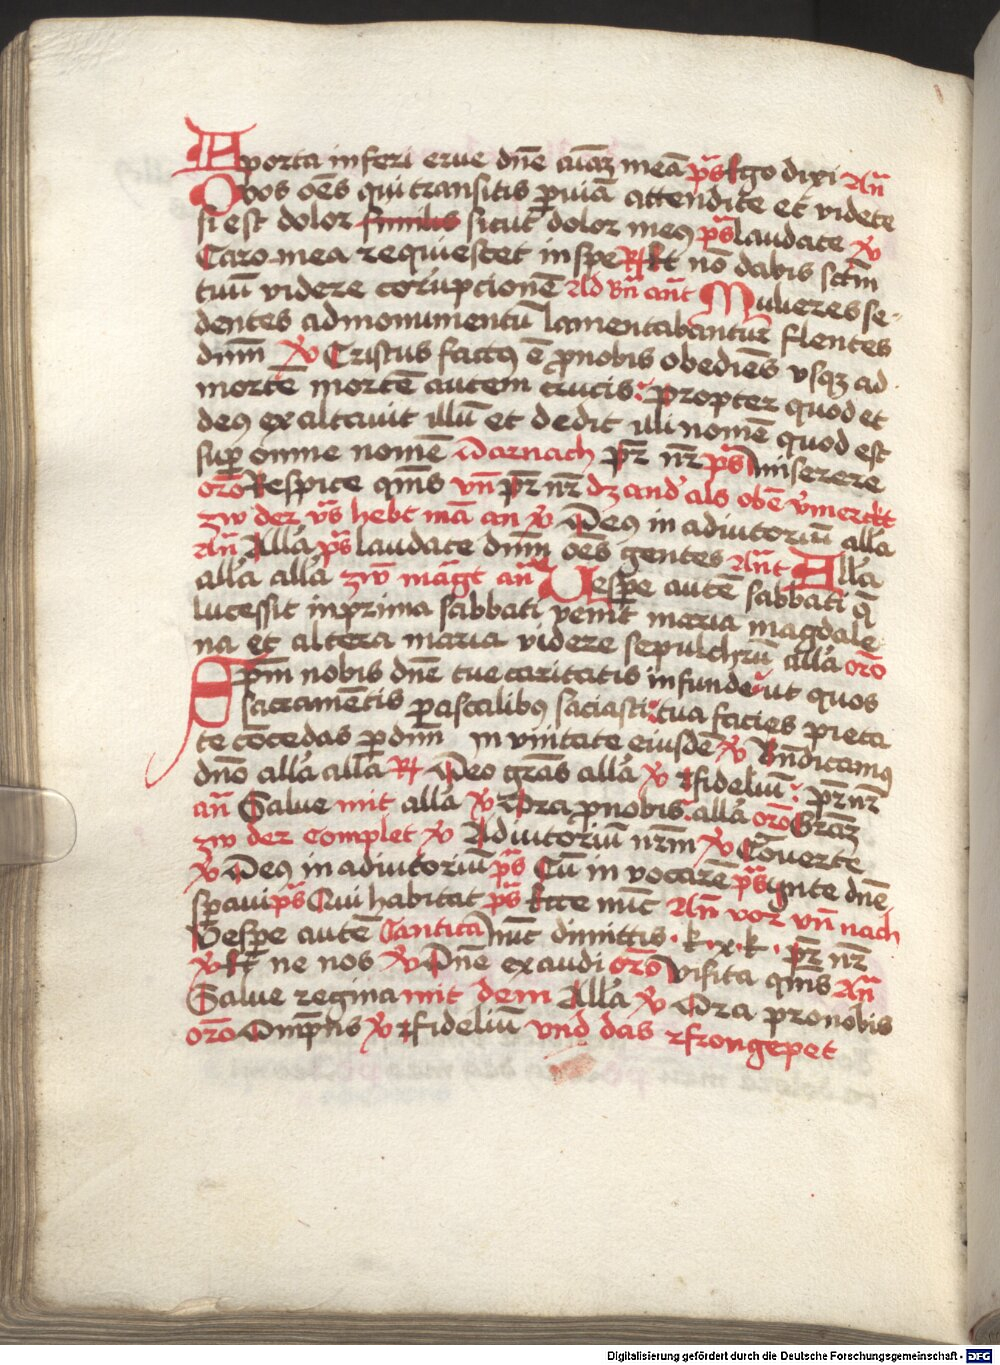 A porta inferi erue dn̄e aīaꝫ meā p̄s Ego dixi An̄
O vos oēs qui transitis ꝑ viā attendite et videte
si est dolor similis sicut dolor meꝰ p̄s laudate ℣
Caro mea requiescet in spe ℟ Et nō dabis sctm̄
tuū videre corūpcionē Ad bn̄ ant̄ Mulieres se-
dentes ad monumentū lamentabantur flentes
dnm̄ ℣ Cristus factꝰ ē ꝓ nobis obediēs vsqꝫ ad
mortē mortē autem crucis : propter quod et
deꝰ exaltauit illū et dedit illi nomē quod est
suꝑ omne nomē Darnach pr̄ nr̄ p̄s Miserere
orō Respice qm̄s vn̄ pr̄ nr̄ dz and' als obē v̄merckt
zw der v̄s hebt mā an ℣ Deꝰ in adiutoriū all'a
An̄ All'a p̄s laudate dnm̄ oēs gentes An̄t All'a
all'a all'a zū māgt an̄ Uespe autē sabbati q̄
lucessit in prima sabbati venit maria magdale
na et altera maria videre sepulchrū all'a orō
Spm̄ nobis dn̄e tue caritatis infunde : ut quos
sacramētis pascalibꝰ saciasti : tua facies pieta
te cōcedas ꝑ dnm̄ in vnitate eiusdē ℣ Bn̄dicamꝰ
dnō all'a all'a ℟ Deo grās all'a ℣ Et fideliū : pr̄ nr̄
an̄ Salue mit all'a ℣ Ora ꝓ nobis all'a orō Grāꝫ
zw der complet ℣ Adiutoriū nr̄m ℣ Cōuerte
℣ Deꝰ in adiutoriū p̄s Cū inuocarē p̄s In te dn̄e
sꝑaui p̄s Qui habitat p̄s Ecce nūc An̄ vor vn̄ nach
Vespe autē Cantica Nūc dimittis · k · x · k · pr̄ nr̄
℣ Et ne nos ℣ Dn̄e exaudi orō Visita qm̄s An̄
Salue regina mit dem All'a ℣ Ora pro nobis
orō Omp̄ns ℣ Et fideliū vnd das